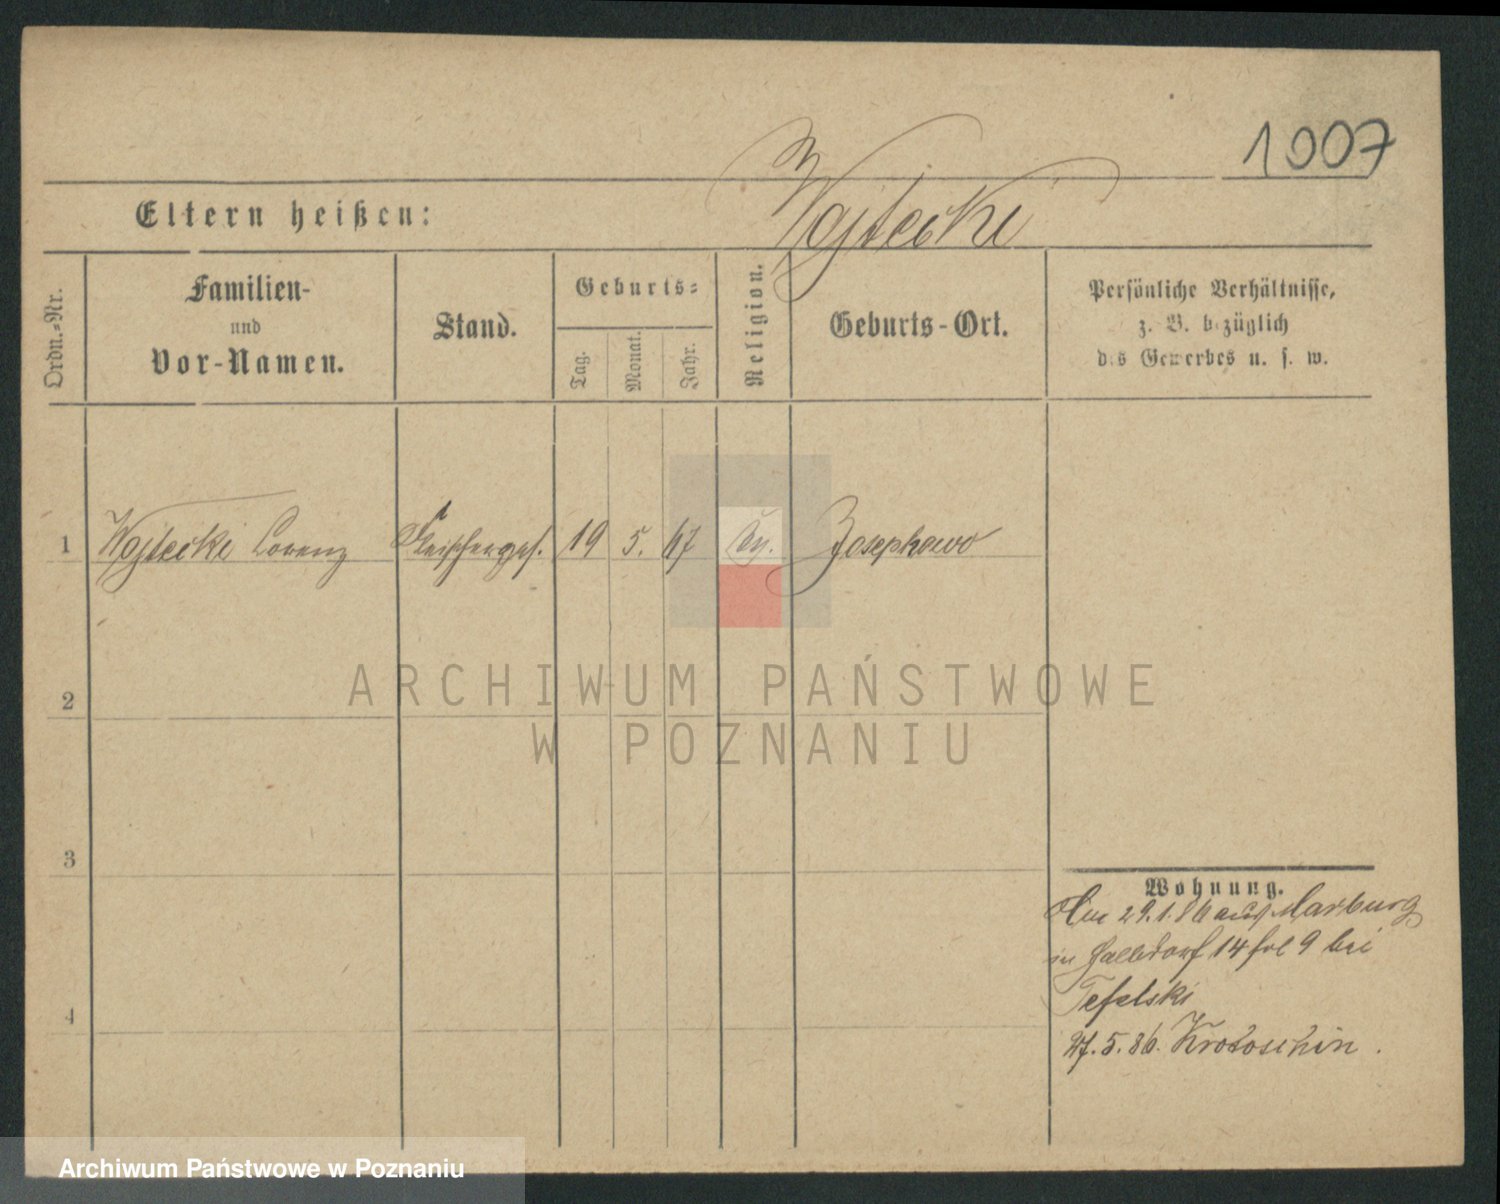 1007
Eltern heißen: Wojtecki
Ordn.-Nr.
Familien-
und
Vor-Namen.
Stand.
Geburts-
Tag.
Monat.
Jahr.
Religion.
Geburts-Ort.
Persönliche Verhältnisse,
z. B. bezüglich
des Gewerbes u. s. w.
1 Wojtecki Lorenz Fleischerges. 19 5. 67 Josephowo
2
ARCHIWUM PAŃSTWOWE
W POZNANIU
3
Wohnung.
29.1.86 aus Marburg
in Halbdorf 14 bei
Tefelski
27.5.86. Krotoschin.
4
Archiwum Państwowe w Poznaniu